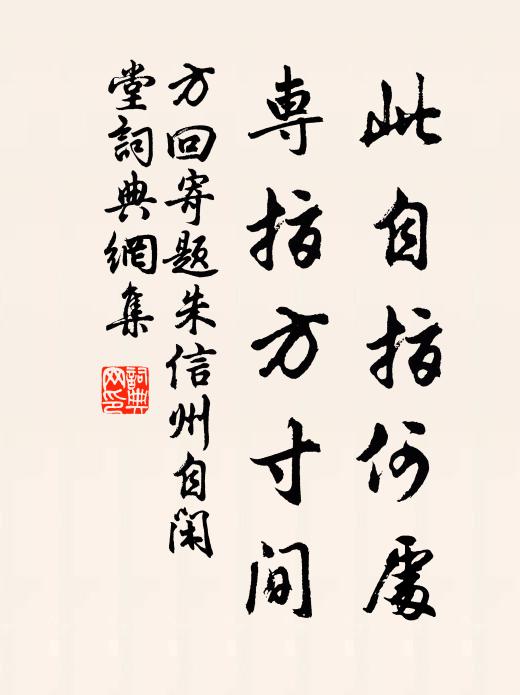 此自指何處
專指方寸間
方回寄題朱信州自閑
堂詞典網集
詞典
网印